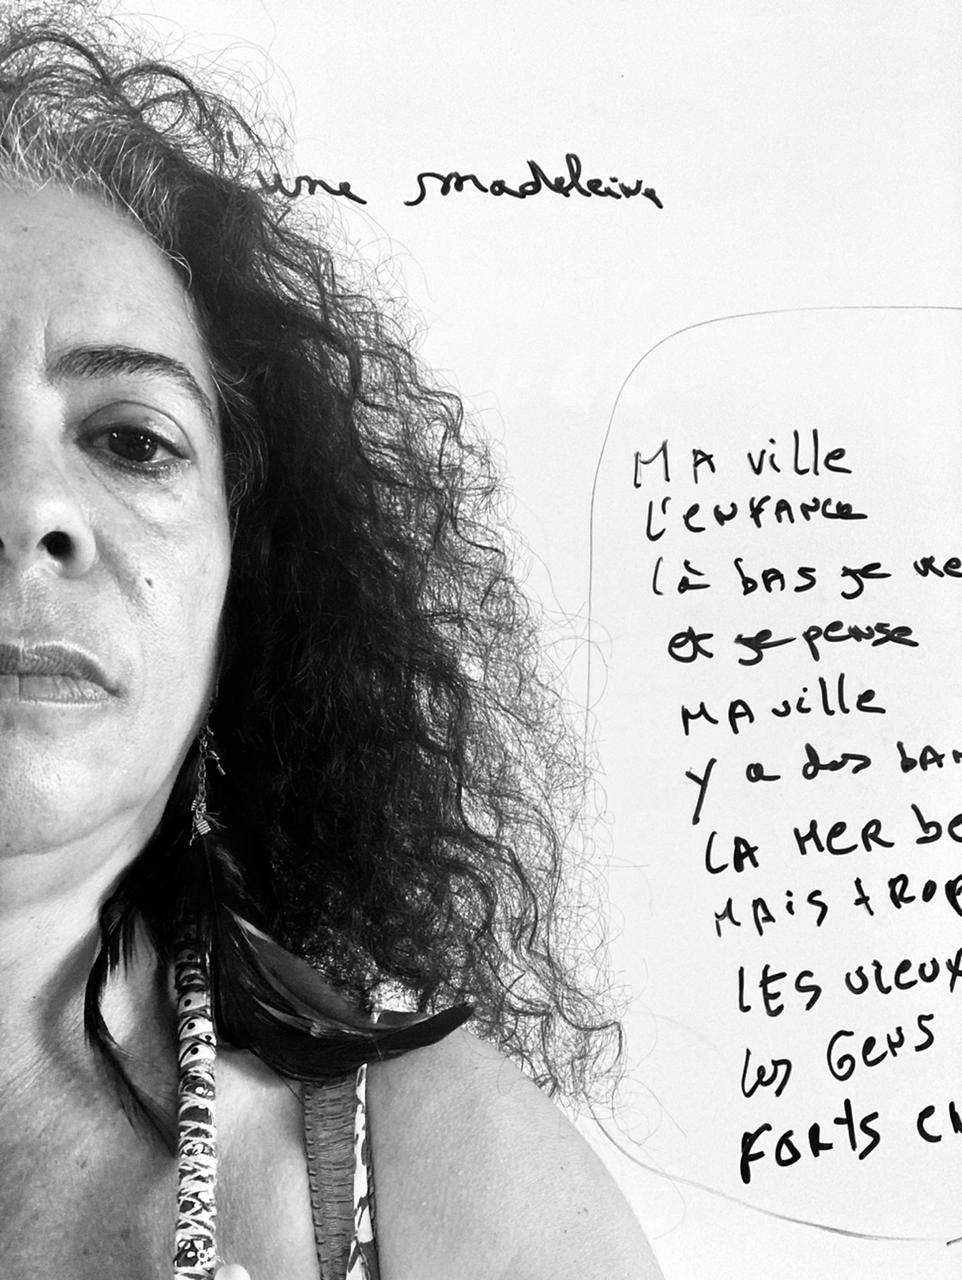 une madeleine
MA ville
L'ENFANCE
là bAS je
et je pense
MA ville
y a des
LA MER
MAiS tROP
LES vieux
les GENS
FORtS